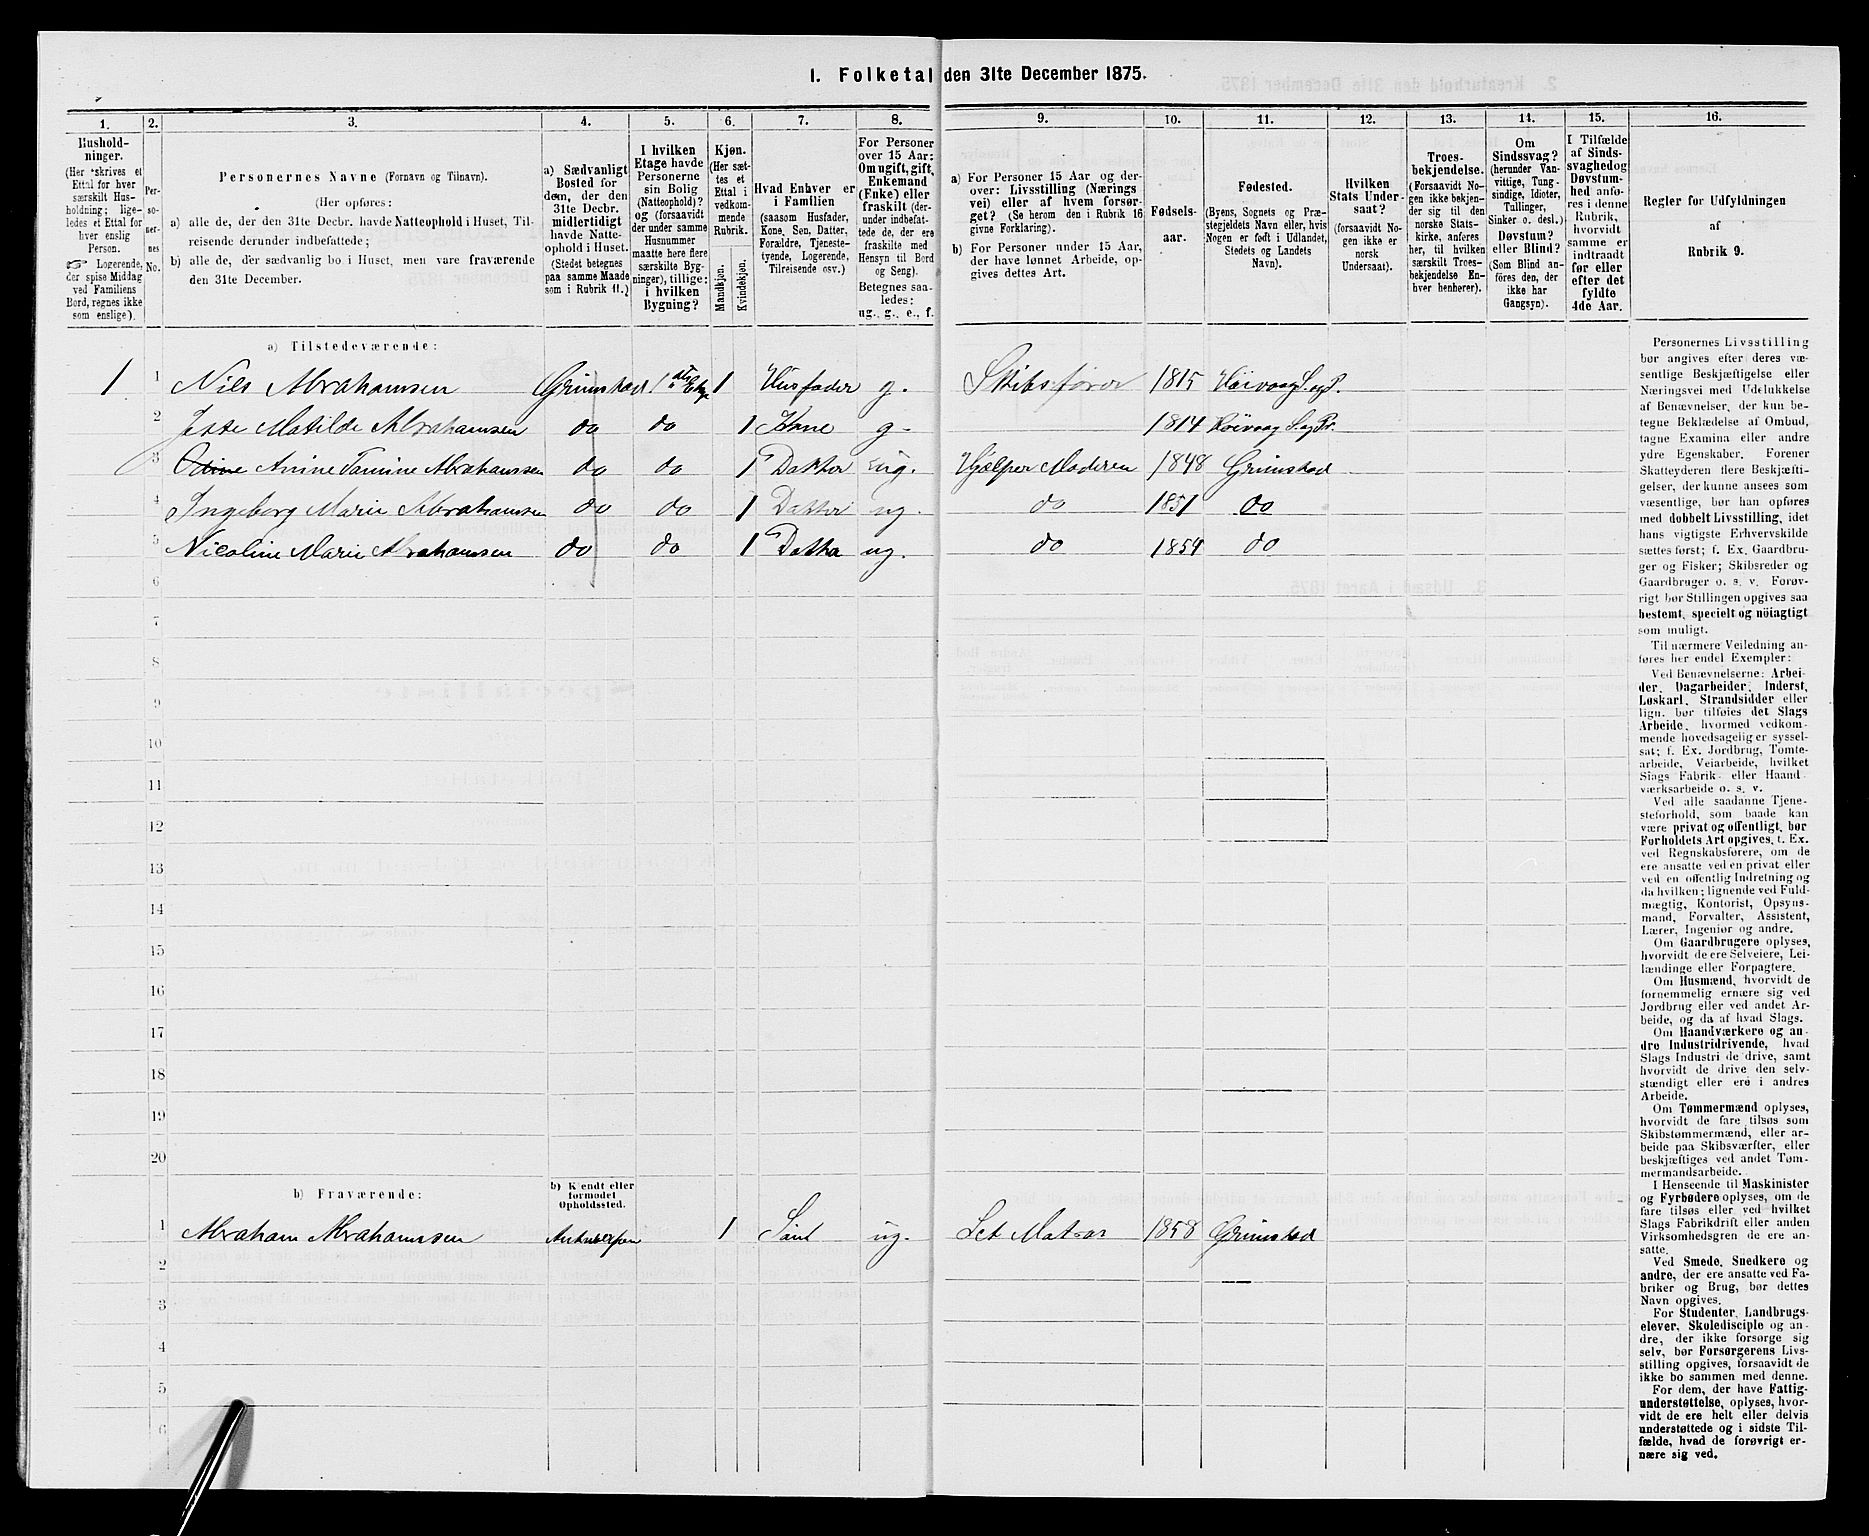 1. Folketal den 31te December 1875.
1.
2.
3.
4.
5.
6.
7.
8.
9.
10.
11.
12.
13.
14.
15.
16.
Hushold-
ninger.
(Her skrives et
Ettal for hver
særskilt Hus-
holdning; lige-
ledes et Ettal for
hver enslig
Person.
☞ Logerende,
der spise Middag
ved Familiens
Bord, regnes ikke
som enslige).
Per-
so-
ner-
nes
No.
Personernes Navne (Fornavn og Tilnavn).
(Her opføres:
a) alle de, der den 31te Decbr. havde Natteophold i Huset, Til-
reisende derunder indbefattede;
b) alle de, der sædvanlig bo i Huset, men vare fraværende
den 31te December.
a) Sædvanligt
Bosted for
dem, der den
31te Decbr.
midlertidigt
havde Natte-
ophold i Huset.
(Stedet betegnes
paa samme Maade
som i Rubrik 11.)
I hvilken
Etage havde
Personerne
sin Bolig
(Natteophold)?
og (forsaavidt
der under samme
Husnummer
maatte høre flere
særskilte Byg-
ninger), tillige:
i hvilken
Bygning?
Kjøn.
(Her sæt-
tes et
Ettal i
vedkom-
mende
Rubrik.
Mandkjøn.
Kvindekjøn.
Hvad Enhver er
i Familien
(saasom Husfader,
Kone, Søn, Datter,
Forældre, Tjeneste-
tyende, Logerende,
Tilreisende osv.)
For Personer
over 15 Aar:
Om ugift, gift,
Enkemand
(Enke) eller
fraskilt (der-
under indbefat-
tede de, der ere
fraskilte med
Hensyn til Bord
og Seng).
Betegnes saa-
ledes:
ug., g., e., f.
a) For Personer 15 Aar og der-
over: Livsstilling (Nærings-
vei) eller af hvem forsør-
get? (Se herom den i Rubrik 16
givne Forklaring).
b) For Personer under 15 Aar,
der have lønnet Arbeide, op-
gives dettes Art.
Fødsels-
aar.
Fødested.
(Byens, Sognets og Præ-
stegjeldets Navn eller, hvis
Nogen er født i Udlandet,
Stedets og Landets
Navn).
Hvilken
Stats Under-
saat?
(forsaavidt No-
gen ikke er
norsk
Undersaat).
Troes-
bekjendelse.
(Forsaavidt No-
gen ikke bekjen-
der sig til den
norske Stats-
kirke, anføres
her, til hvilken
særskilt Troes-
bekjendelse En-
hver henhører).
Om
Sindssvag?
(herunder Van-
vittige, Tung-
sindige, Idioter,
Tullinger,
Sinker o. desl.)
Døvstum?
eller Blind?
(Som Blind an-
føres den, der
ikke har
Gangsyn).
I Tilfælde
af Sinds-
svaghed og
Døvstum-
hed anfø-
res i denne
Rubrik,
hvorvidt
samme er
indtraadt
før eller
efter det
fyldte
4de Aar.
Regler for Udfyldningen
af
Rubrik 9.
a) Tilstedeværende:
1 1 Nils Abrahamsen Grimstad 1ste Etage 1 Husfader g. Skibsfører 1815 Høivaag S. og P.
2 Matilde Abrahamsen do do 1 Kone g. 1814 Høivaag S. og Pr.
3 Anine Tamine Abrahamssen do do 1 Datter ug. Hjælper Moderen 1848 Grimstad
4 Ingeborg Marie Abrahamsen do do 1 Datter ug. do 1851 do
5 Nicoline Marie Abrahamsen do do 1 Datter ug. do 1854 do
6
7
8
9
10
11
12
13
14
15
16
17
18
19
20
b) Fraværende:
b) Kjendt eller
formodet
Opholdssted.
1 Abraham Abrahamssen Antwerpen 1 Sønn ug. Let Matros 1858 Grimstad
2
3
4
5
6
Personernes Livsstilling
bør angives efter deres væ-
sentlige Beskjæftigelse eller
Næringsvei med Udelukkelse
af Benævnelser, der kun be-
tegne Beklædelse af Ombud,
tagne Examina eller andre
ydre Egenskaber. Forener
Skatteyderen flere Beskjæfti-
gelser, der kunne ansees som
væsentlige, bør han opføres
med dobbelt Livsstilling, idet
hans vigtigste Erhvervskilde
sættes først; f. Ex. Gaardbru-
ger og Fisker; Skibsreder og
Gaardbruger o. s. v. Forøv-
rigt bør Stillingen opgives saa
bestemt, specielt og nöiagtigt
som muligt.
Til nærmere Veiledning an-
føres her endel Exempler:
Ved Benævnelserne: Arbei-
der, Dagarbeider, Inderst,
Løskarl, Strandsidder eller
lign. bør tilføies det Slags
Arbeide, hvormed vedkom-
mende hovedsagelig er syssel-
sat; f. Ex. Jordbrug, Tomte-
arbeide, Veiarbeide, hvilket
Slags Fabrik- eller Haand-
værksarbeide o. s. v.
Ved alle saadanne Tjene-
steforhold, som baade kan
være privat og offentligt, bør
Forholdets Art opgives, t. Ex.
ved Regnskabsførere, om de
ere ansatte ved en privat eller
ved en offentlig Indretning og
da hvilken; lignende ved Fuld-
mægtig, Kontorist, Opsyns-
mand, Forvalter, Assistent,
Lærer, Ingeniør og andre.
Om Gaardbrugere oplyses,
hvorvidt de ere Selveiere, Lei-
lændinge eller Forpagtere.
Om Husmænd, hvorvidt de
fornemmelig ernære sig ved
Jordbrug eller ved andet Ar-
beide, og da af hvad Slags.
Om Haandværkere og an-
dre Industridrivende, hvad
Slags Industri de drive, samt
hvorvidt de drive den selv-
stændigt eller ere i andres
Arbeide.
Om Tømmermænd oplyses,
hvorvidt de fare tilsøs som
Skibstømmermænd, eller ar-
beide paa Skibsværfter, eller
beskjæftiges ved andet Tøm-
mermandsarbeide.
I Henseende til Maskinister
og Fyrbødere oplyses, om de
fare tilsøs eller ved hvilket
Slags Fabrikdrift eller anden
Virksomhedsgren de ere an-
satte.
Ved Smede, Snedkere og
andre, der ere ansatte ved Fa-
briker og Brug, bør dettes
Navn opgives.
For Studenter, Landbrugs-
elever, Skoledisciple og an-
dre, der ikke forsørge sig
selv, bør Forsørgerens Livs-
stilling opgives, forsaavidt de
ikke bo sammen med denne.
For dem, der have Fattig-
understøttelse, oplyses, hvor-
vidt de ere helt eller delvis
understøttede og i sidste Til-
fælde, hvad de forøvrigt er-
nære sig ved.